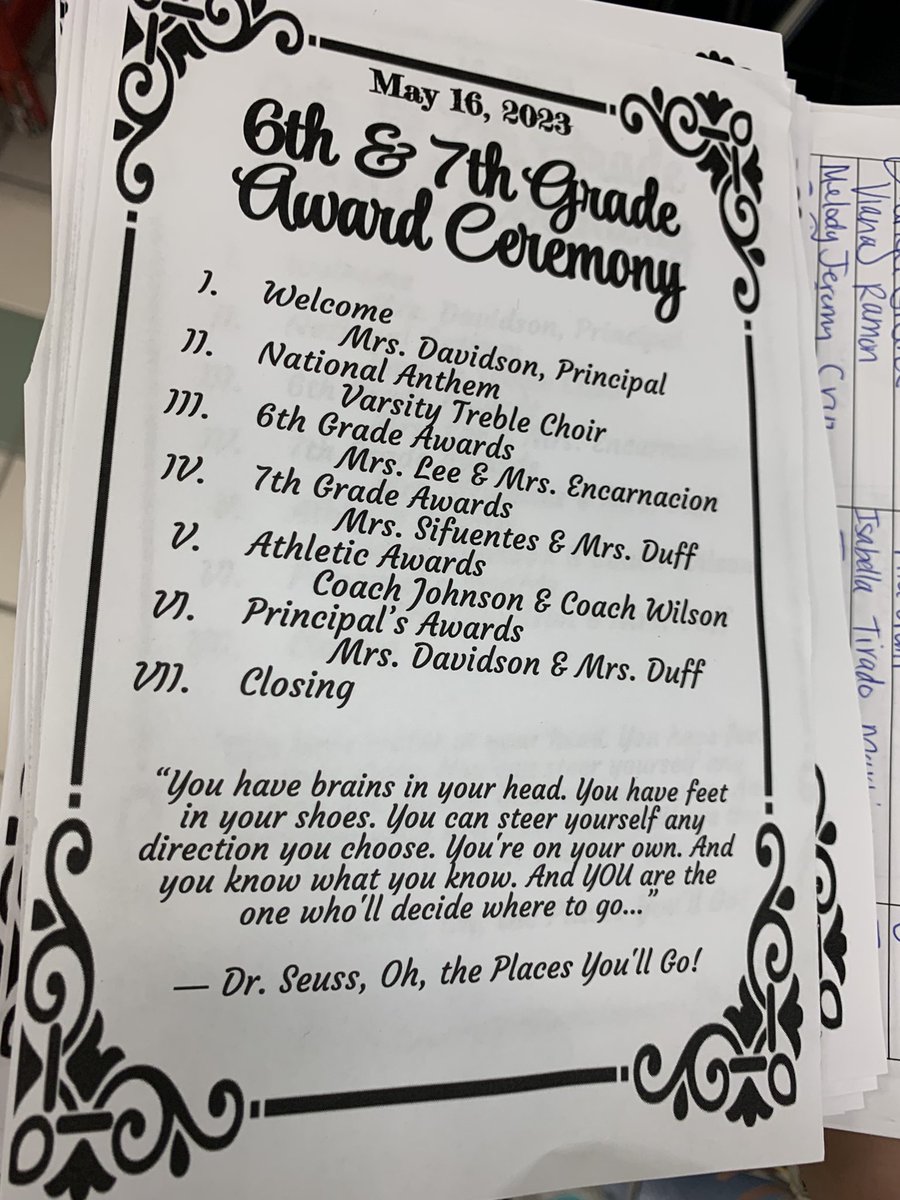 May 16, 2023
6th & 7th Grade
Award Ceremony
I. Welcome
Mrs. Davidson, Principal
II. National Anthem
Varsity Treble Choir
III. 6th Grade Awards
Mrs. Lee & Mrs. Encarnacion
IV. 7th Grade Awards
Mrs. Sifuentes & Mrs. Duff
V. Athletic Awards
Coach Johnson & Coach Wilson
VI. Principal's Awards
Mrs. Davidson & Mrs. Duff
VII. Closing
“You have brains in your head. You have feet
in your shoes. You can steer yourself any
direction you choose. You're on your own. And
you know what you know. And YOU are the
one who'll decide where to go...”
— Dr. Seuss, Oh, the Places You'll Go!
Ramon
Melody Jeremy
Isabella Tirado